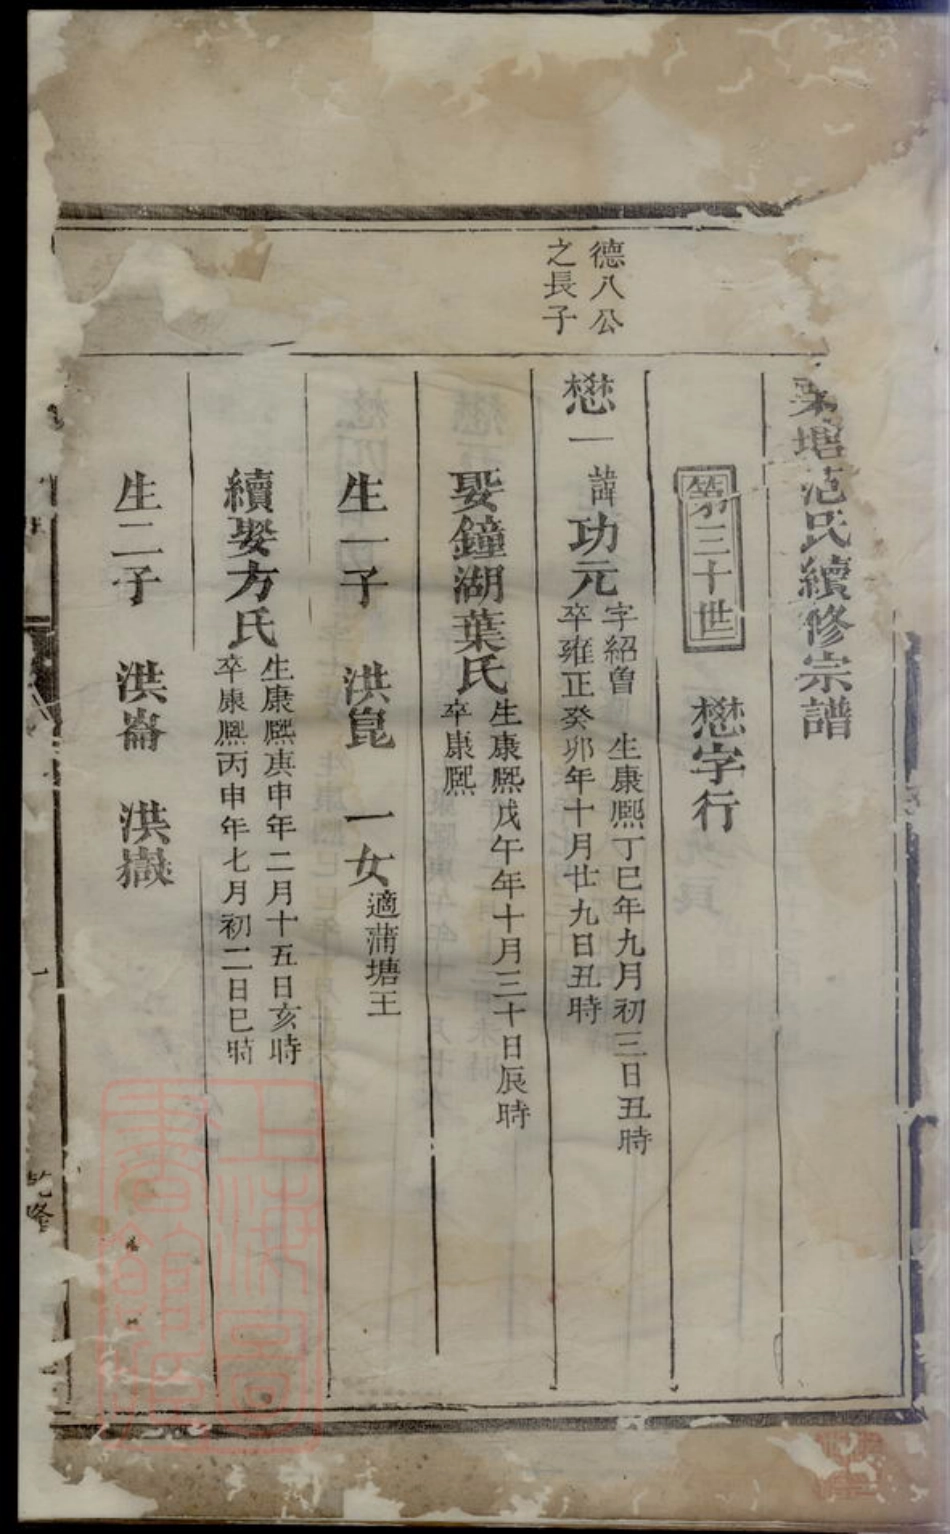 塘范氏續修宗譜
第三十世 懋字行
德八公
之長子
懋一 諱功元 字紹曽 生康熈丁巳年九月初三日丑時
卒雍正癸卯年十月廿九日丑時
娶鐘湖葉氏 生康熈戊午年十月三十日辰時
卒康熈
生一子 洪崑 一女 適蒲塘王
續娶方氏 生康熈庚申年二月十五日亥時
卒康熈丙申年七月初二日巳時
生二子 洪崙 洪嶽
一
乾隆
上海圖書館藏